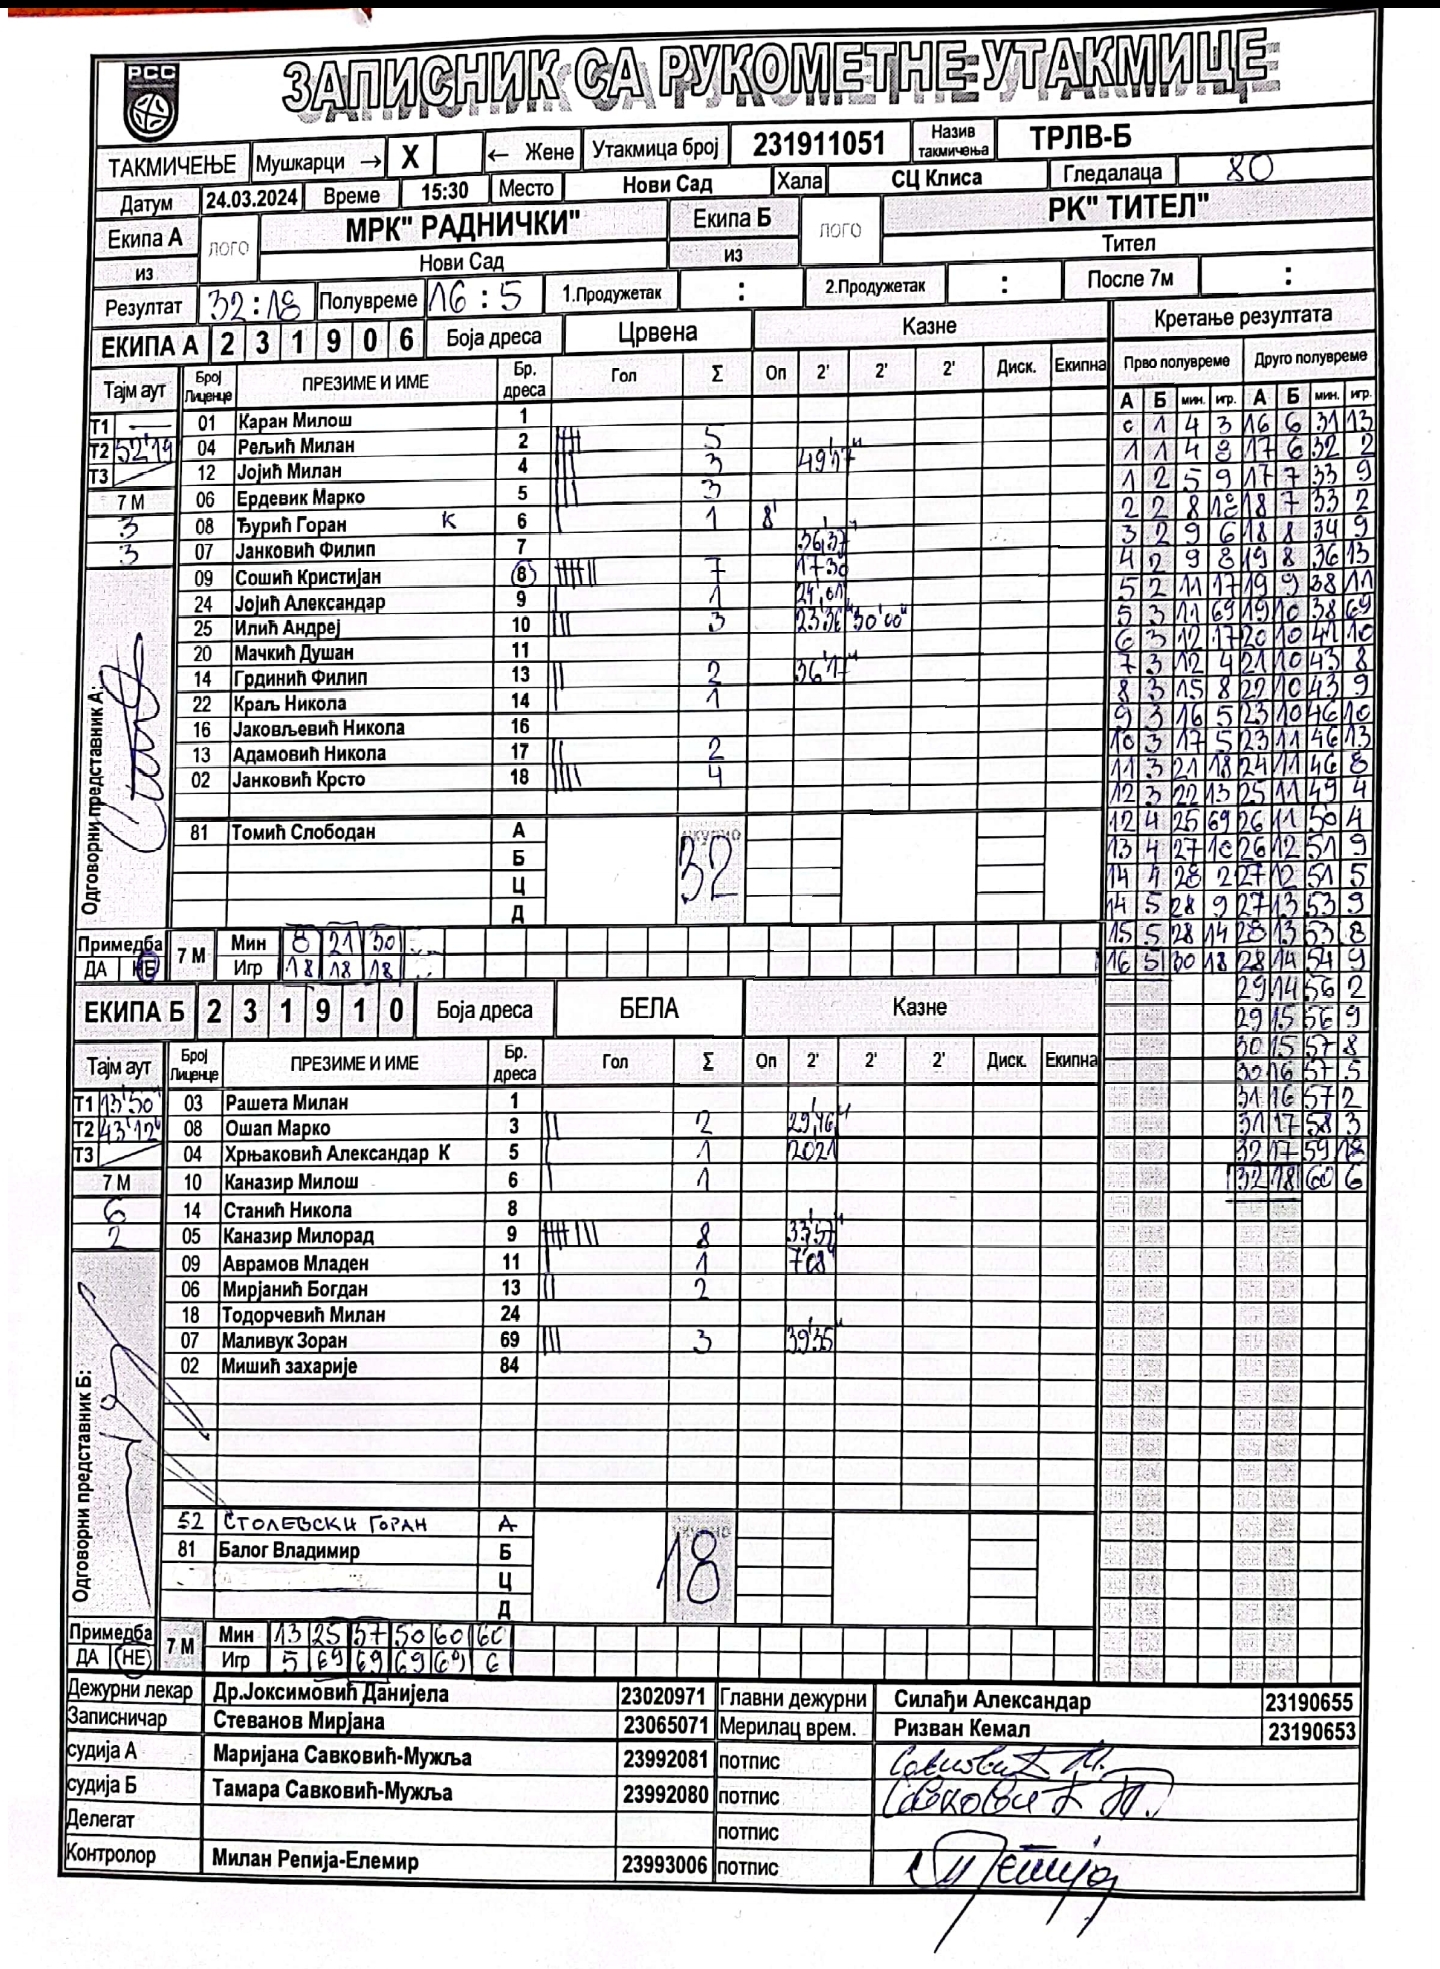 РСС
ЗАПИСНИК СА РУКОМЕТНЕ УТАКМИЦЕ
ТАКМИЧЕЊЕ Мушкарци → X ← Жене Утакмица број 231911051 Назив такмичења ТРЛВ-Б
Датум 24.03.2024 Време 15:30 Место Нови Сад Хала СЦ Клиса Гледалаца 80
Екипа А ЛОГО МРК" РАДНИЧКИ" Екипа Б ЛОГО РК" ТИТЕЛ"
из Нови Сад из Тител
Резултат 32:18 Полувреме 16:5 1.Продужетак : 2.Продужетак : После 7м :
ЕКИПА А 2 3 1 9 0 6 Боја дреса Црвена Казне Кретање резултата
Тајм аут Број Лиценце ПРЕЗИМЕ И ИМЕ Бр. дреса Гол Σ Оп 2' 2' 2' Диск. Екипна Прво полувреме Друго полувреме
А Б мин. игр. А Б мин. игр.
Т1 — 01 Каран Милош 1 0 1 4 3 16 6 31 13
Т2 52'19 04 Рељић Милан 2 5 1 1 4 8 17 6 32 2
Т3 12 Јојић Милан 4 3 49'17" 1 2 5 9 17 7 33 9
7 М 06 Ердевик Марко 5 3 2 2 8 18 18 7 33 2
3 08 Ђурић Горан К 6 1 8' 3 2 9 6 18 8 34 9
3 07 Јанковић Филип 7 36'37" 4 2 9 8 19 8 36 13
09 Сошић Кристијан 8 7 17'30 5 2 11 17 19 9 38 11
24 Јојић Александар 9 1 24'01" 5 3 11 69 19 10 38 69
25 Илић Андреј 10 3 23'36" 30'00" 6 3 12 17 20 10 41 10
20 Мачкић Душан 11 7 3 12 4 21 10 43 8
14 Грдинић Филип 13 2 36'17" 8 3 15 8 22 10 43 9
22 Краљ Никола 14 1 9 3 16 5 23 10 46 10
16 Јаковљевић Никола 16 10 3 17 5 23 11 46 13
13 Адамовић Никола 17 2 11 3 21 18 24 11 46 8
02 Јанковић Крсто 18 4 12 3 22 13 25 11 49 4
12 4 25 69 26 11 50 4
81 Томић Слободан А 32 13 4 27 10 26 12 51 9
Б
Ц 14 4 28 2 27 12 51 5
Д 14 5 28 9 27 13 53 9
Одговорни представник А:
Примедба 7 М Мин 8 21 30 15 5 28 14 28 13 53 8
ДА НЕ Игр 18 18 18 16 5 30 18 28 14 54 9
29 14 56 2
ЕКИПА Б 2 3 1 9 1 0 Боја дреса БЕЛА Казне 29 15 56 9
30 15 57 8
Тајм аут Број Лиценце ПРЕЗИМЕ И ИМЕ Бр. дреса Гол Σ Оп 2' 2' 2' Диск. Екипна 30 16 57 5
Т1 13'50" 03 Рашета Милан 1 31 16 57 2
Т2 43'12" 08 Ошап Марко 3 2 29'46" 31 17 58 3
Т3 04 Хрњаковић Александар К 5 1 20'21 32 17 59 18
7 М 10 Каназир Милош 6 1 32 18 60 6
6 14 Станић Никола 8
2 05 Каназир Милорад 9 8 33'57"
09 Аврамов Младен 11 1 7'08"
06 Мирјанић Богдан 13 2
18 Тодорчевић Милан 24
07 Маливук Зоран 69 3 39'35"
02 Мишић захарије 84
Одговорни представник Б:
52 СТОЛЕВСКИ ГОРАН А 18
81 Балог Владимир Б
Ц
Д
Примедба 7 М Мин 13 25 37 50 60 60
ДА НЕ Игр 5 69 69 69 69 6
Дежурни лекар Др.Јоксимовић Данијела 23020971 Главни дежурни Силађи Александар 23190655
Записничар Стеванов Мирјана 23065071 Мерилац врем. Ризван Кемал 23190653
судија А Маријана Савковић-Мужља 23992081 потпис
судија Б Тамара Савковић-Мужља 23992080 потпис
Делегат потпис
Контролор Милан Репија-Елемир 23993006 потпис